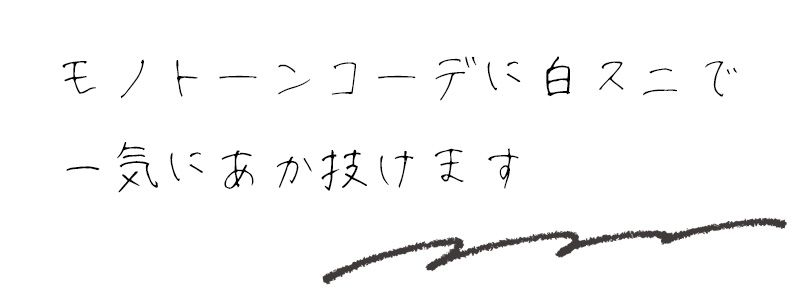 モノトーンコーデに白スニで
一気にあか技けます